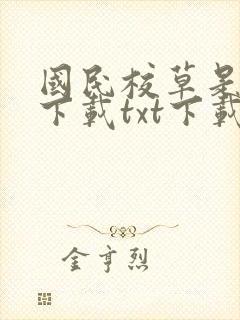 國民校草是
下載txt下載
金亨烈